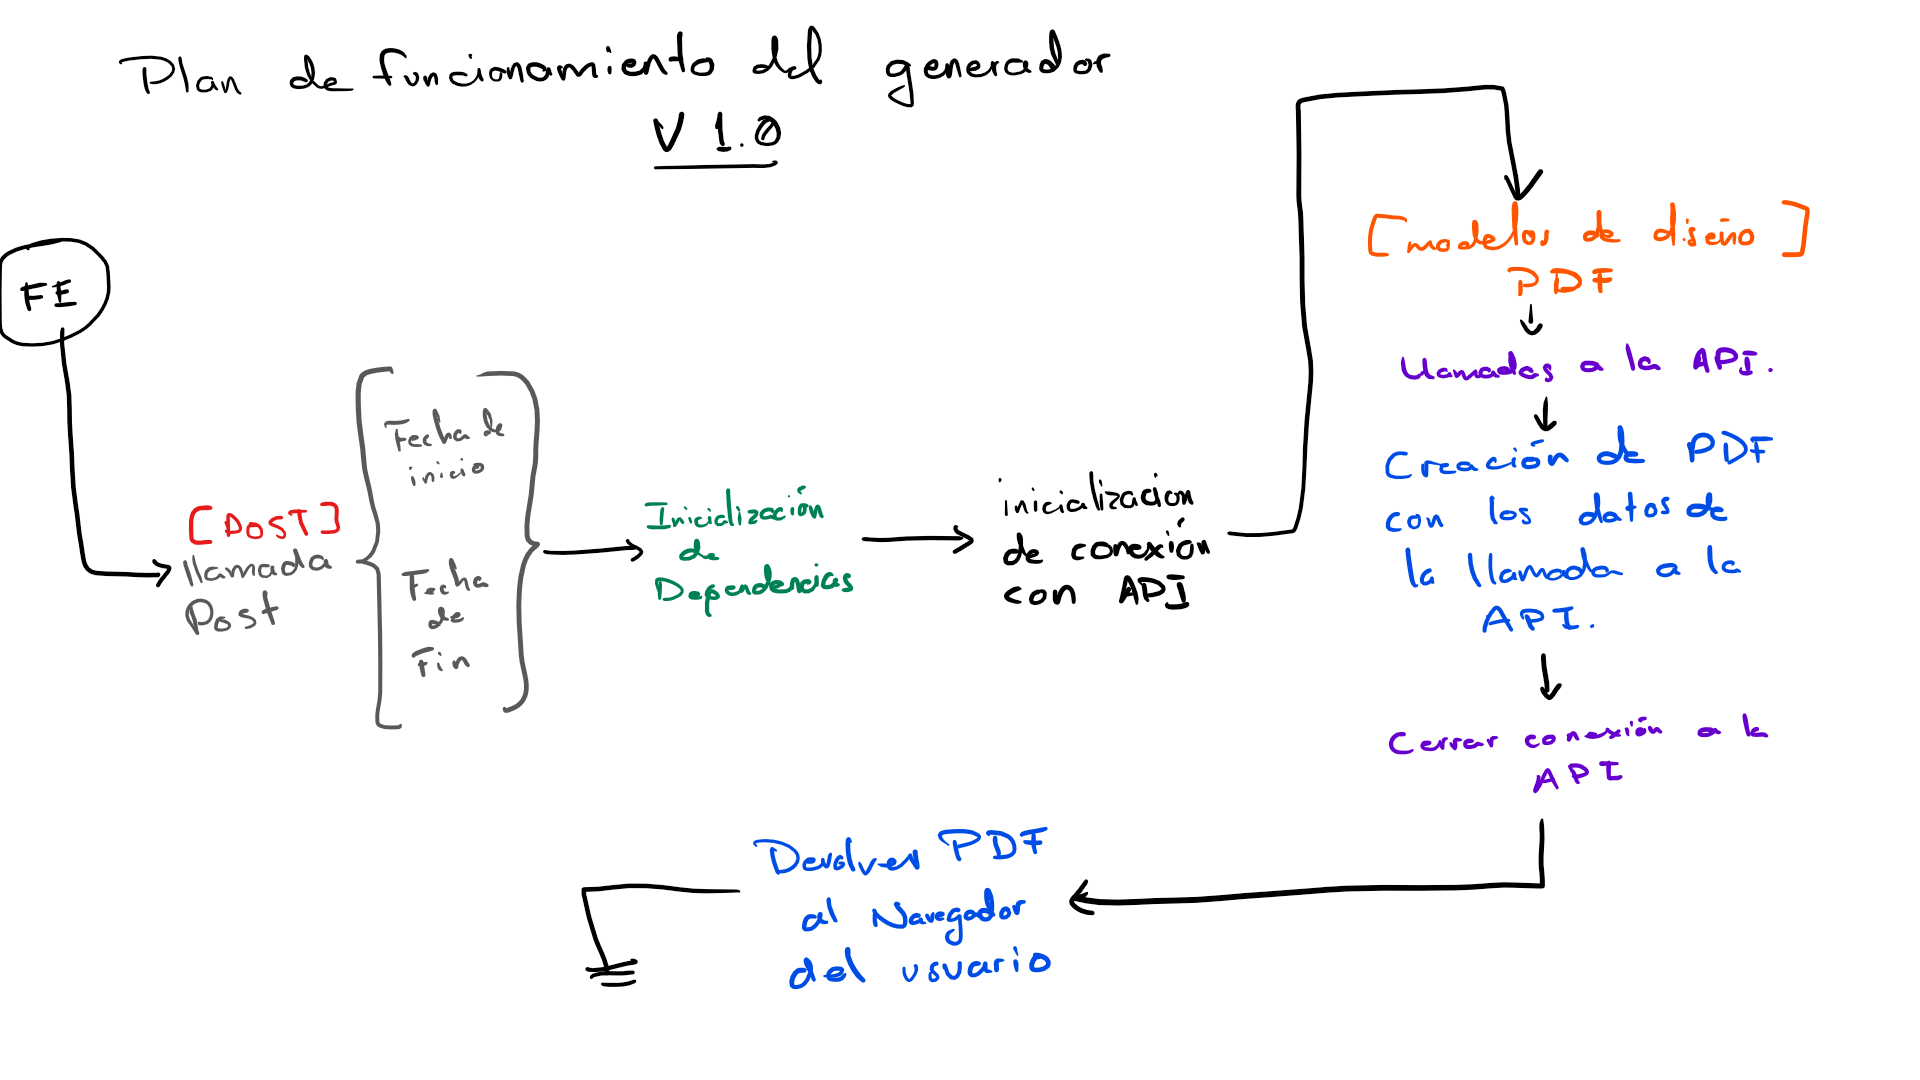 Plan de funcionamiento del generador
V 1.0
FE
[POST]
llamada
Post
Fecha de
inicio
Fecha
de
Fin
Inicialización
de
Dependencias
inicialización
de conexión
con API
[modelos de diseño]
PDF
Llamadas a la API.
Creación de PDF
con los datos de
la llamada a la
API.
Cerrar conexión a la
API
Devolver PDF
al Navegador
del usuario